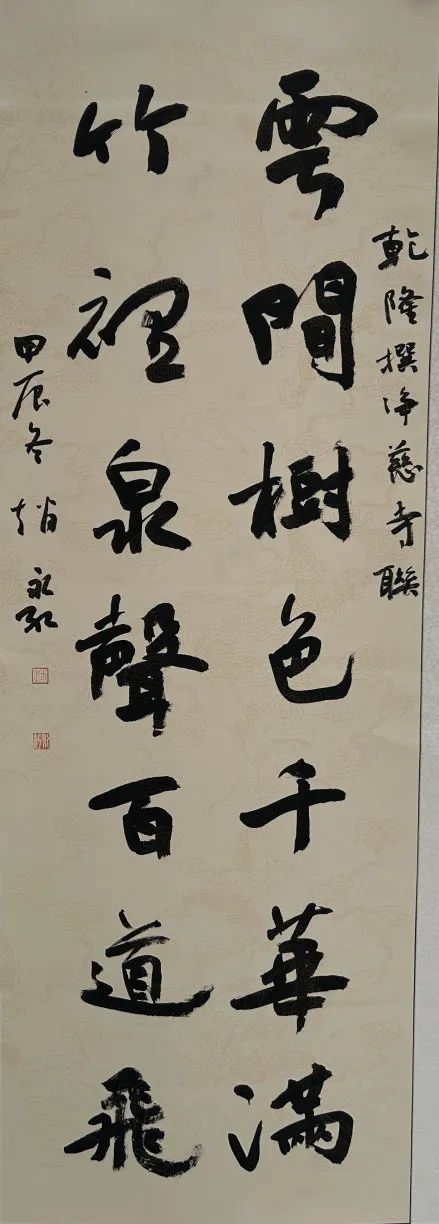 乾隆撰净慈寺聯
雲間樹色千華滿
竹裡泉聲百道飛
甲辰冬 趙永